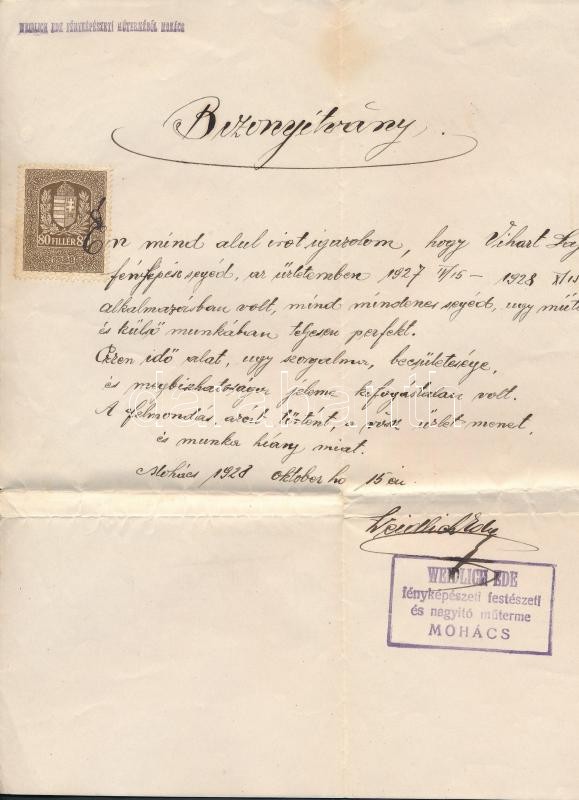 WEIDLICH EDE FÉNYKÉPÉSZETI MŰTERMÉBŐL MOHÁCS
Bizonyítvány.
80 FILLÉR 80
Én mind alul irot igazolom, hogy Vihart Laj
fényképész segéd, az üzletemben 1927 - 1928
alkalmazásban volt, mind mindenes segéd, ugy műte
és külső munkában teljesen perfekt.
Ezen idő alat, ugy szorgalma, becsületesége,
és megbizhatosaga jeleme kifogástalan volt.
A felmondás azért történt, a rossz üzlet menet,
és munka hiány miat.
Mohács 1928 oktober ho 15 én.
Weidlich Ede
WEIDLICH EDE
fényképészeti festészeti
és nagyitó műterme
MOHÁCS
darabanth